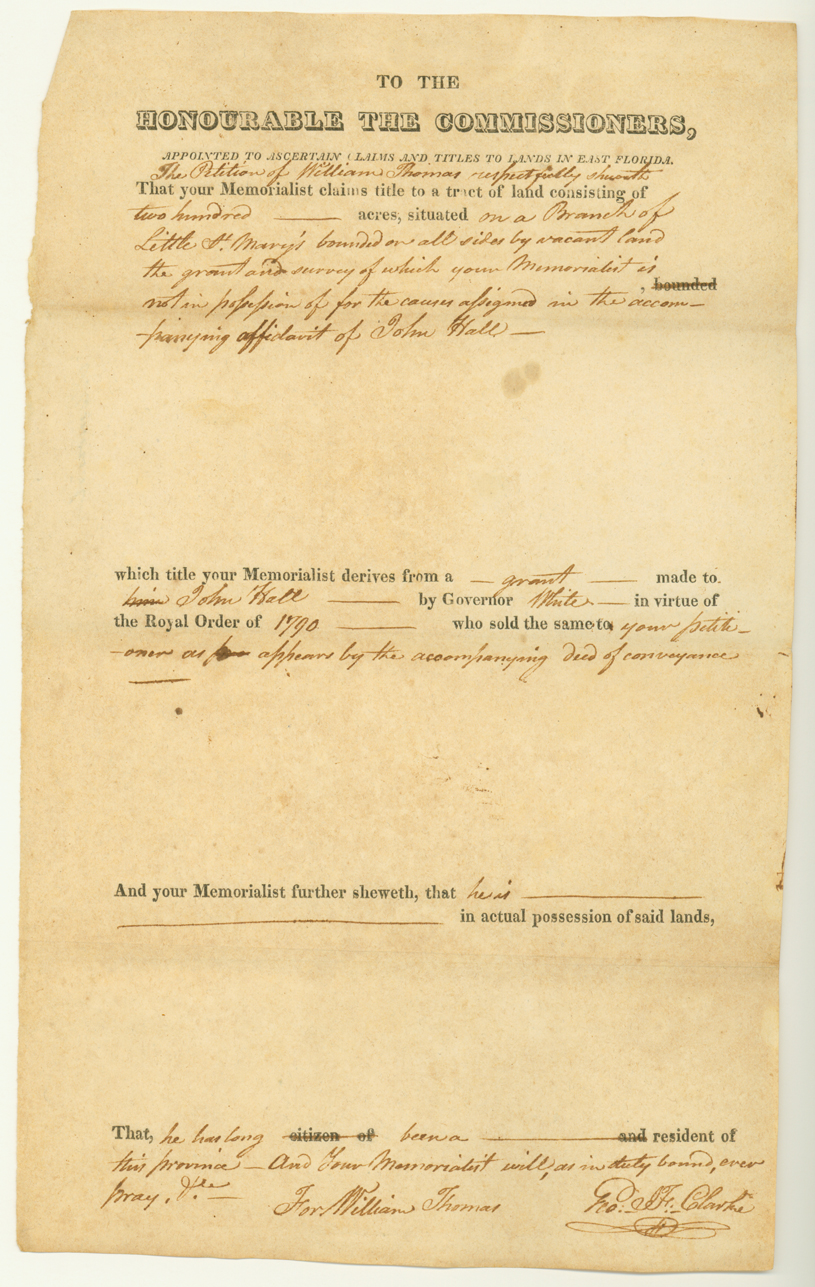 TO THE
HONOURABLE THE COMMISSIONERS,
APPOINTED TO ASCERTAIN CLAIMS AND TITLES TO LANDS IN EAST FLORIDA.
The Petition of William Thomas respectfully sheweth
That your Memorialist claims title to a tract of land consisting of
two hundred acres, situated on a Branch of
Little St. Mary's bounded on all sides by vacant land
the grant and survey of which your Memorialist is
, bounded
not in possession of for the causes assigned in the accom-
panying affidavit of John Hall —
which title your Memorialist derives from a — grant — made to
him John Hall — by Governor White — in virtue of
the Royal Order of 1790 — who sold the same to your petiti-
-oner as appears by the accompanying deed of conveyance
And your Memorialist further sheweth, that he is
in actual possession of said lands,
That, he has long citizen of been a and resident of
this province — And Your Memorialist will, as in duty bound, ever
pray, &c. —
For William Thomas Geo. J. F. Clarke